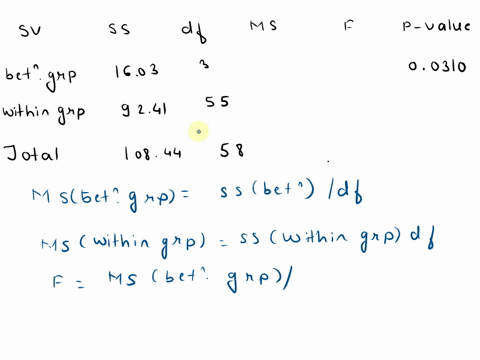 SV SS df MS F P-value
betn. grp 16.03 3 0.0310
within grp 92.41 55
Total 108.44 58
MS(betn. grp) = SS(betn) / df
MS (within grp) = SS (within grp) df
F = MS (betn. grp) /